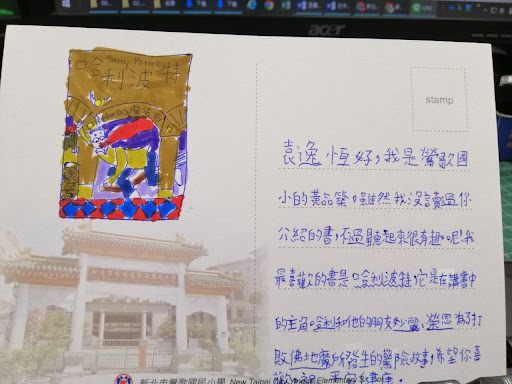 acer
Harry Potter
哈利波特
stamp
袁逸恆好,我是鶯歌國
小的黃品榮,雖然我沒讀過你
介紹的書,不過聽起來很有趣呢!我
最喜歡的書是哈利波特,它是在講書中
的主角哈利和他的朋友妙麗、榮恩為了打
敗佛地魔所發生的冒險故事,希望你喜
新北市鶯歌國民小學 New Taipei City Yingge Elementary School